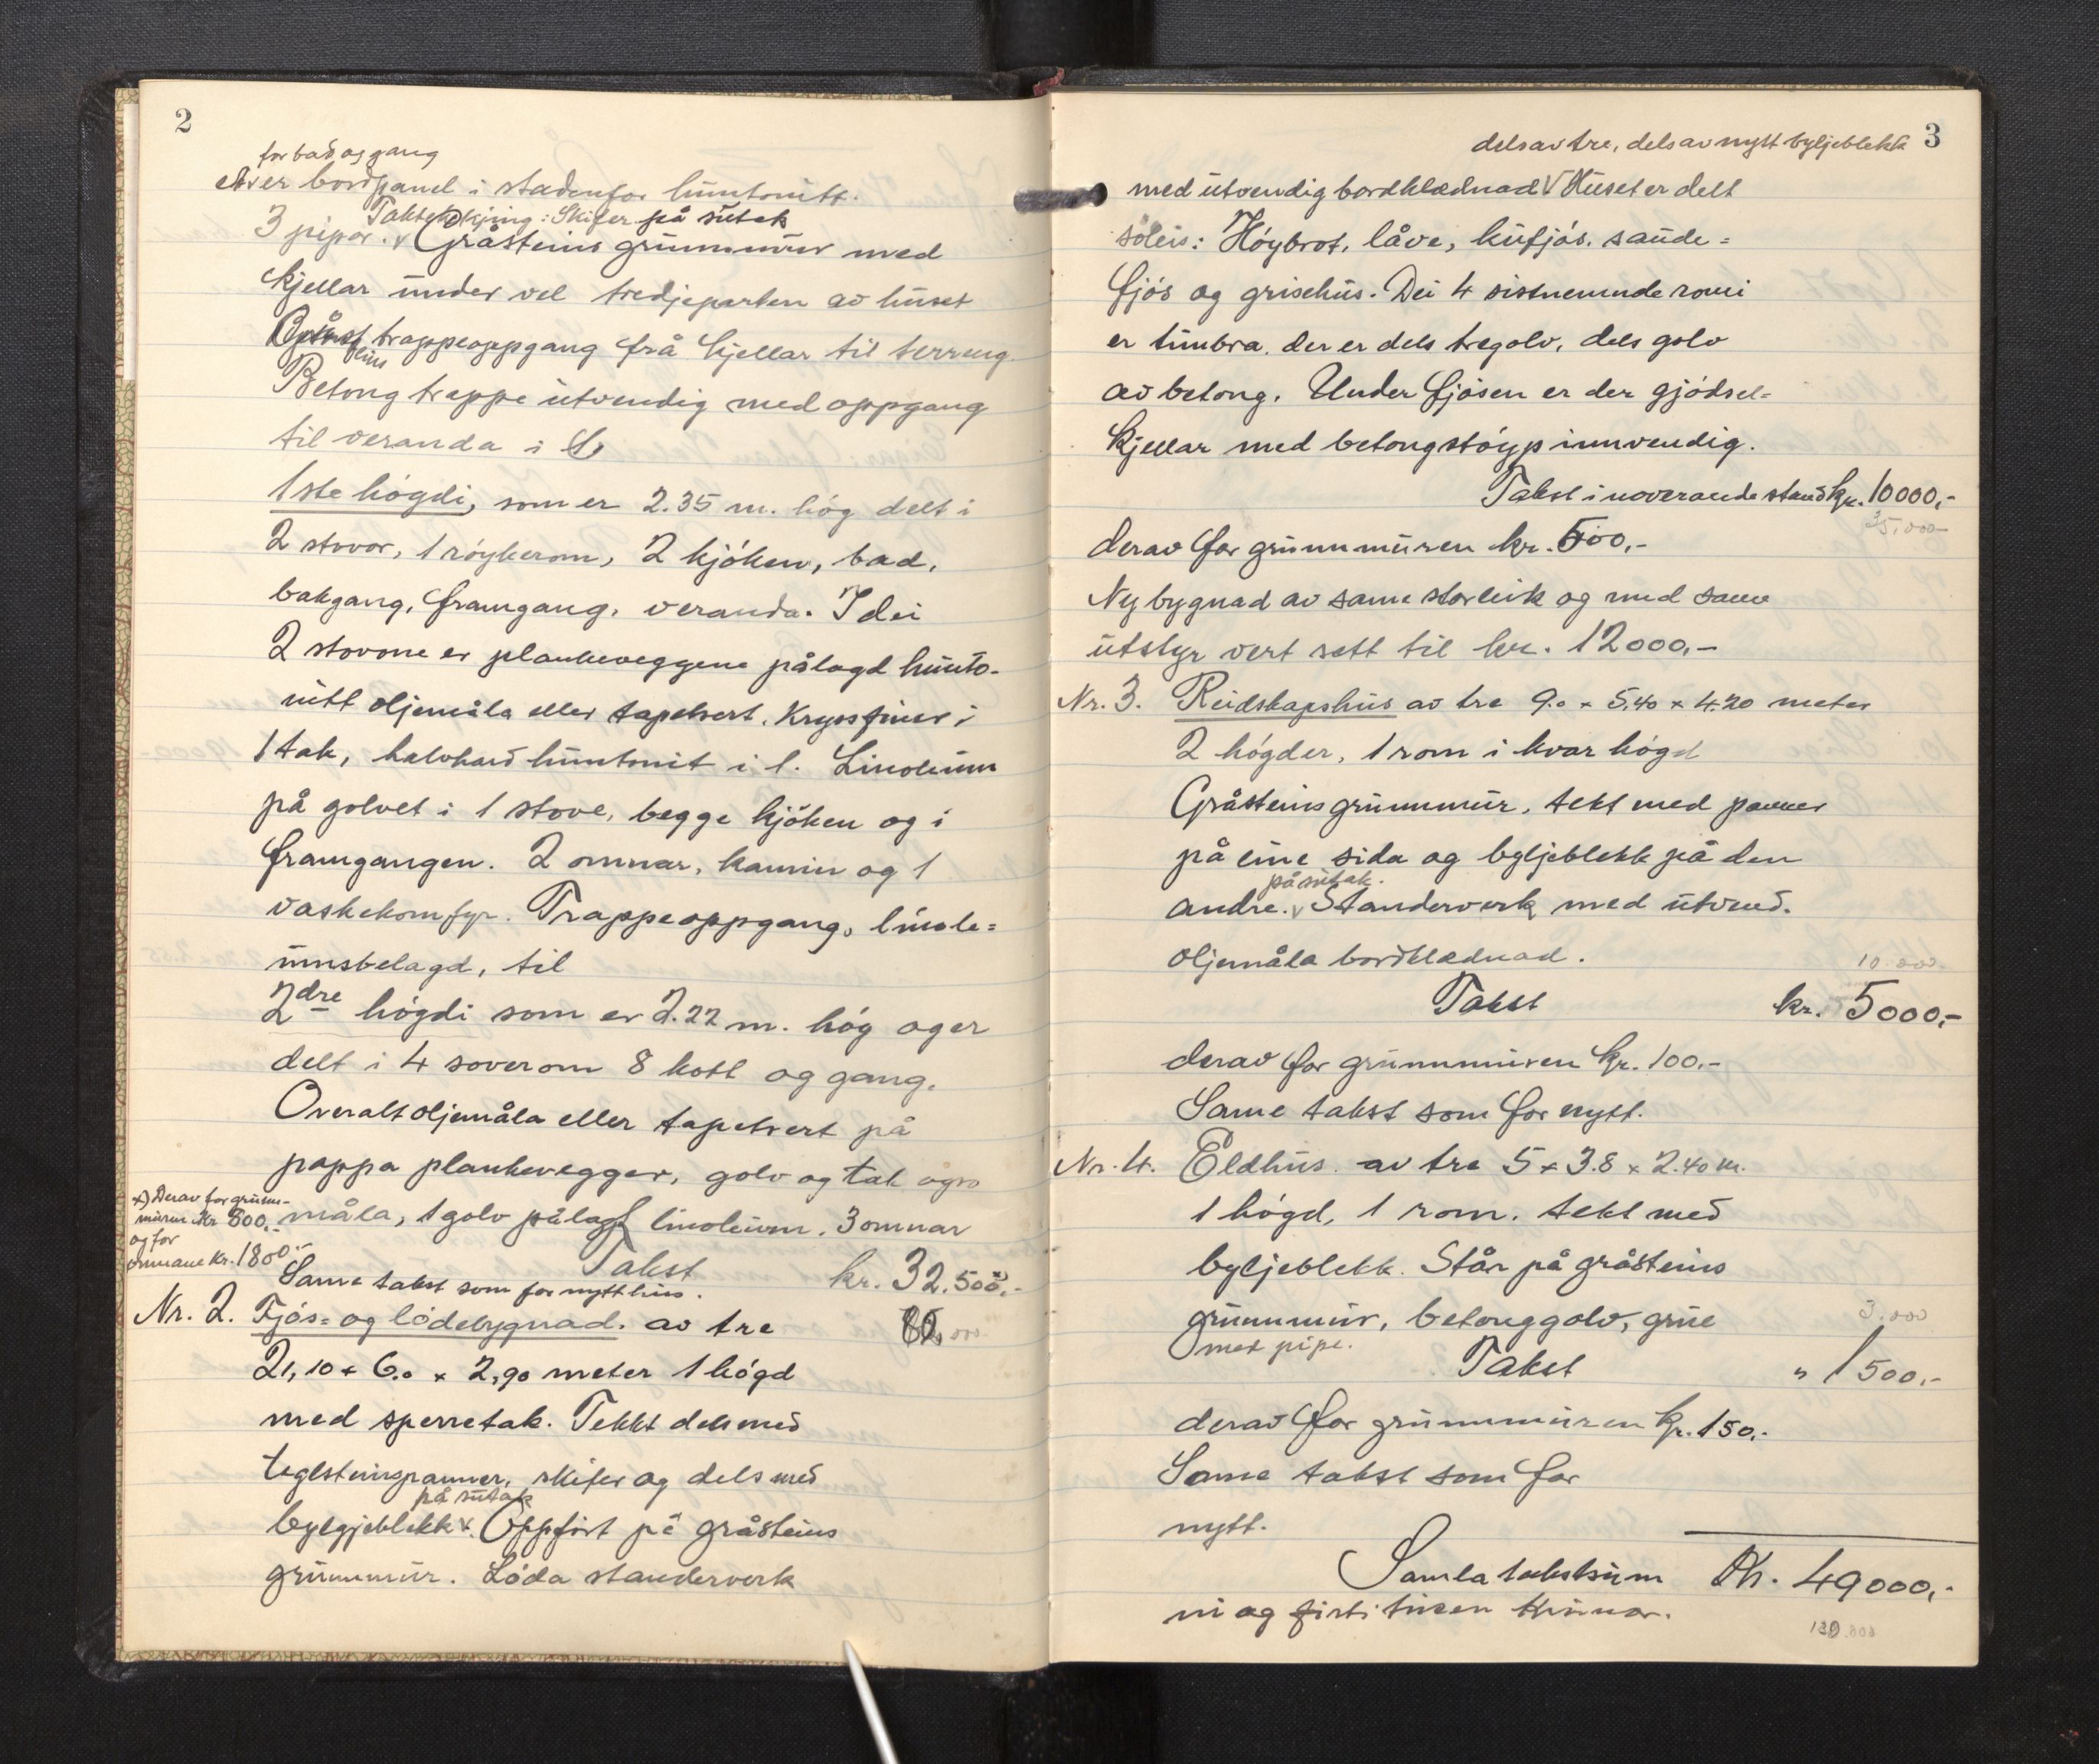 2
for bad og gang
er bordpanel i stadenfor huntonitt.
Taktekkjing: Skifer på sutak
3 pipor. v Gråsteins grunnmur med
kjellar under vel tredjeparten av huset
trappeoppgang frå kjellar til terreng.
Betong trappe utvendig med oppgang
til veranda i
1ste högdi, som er 2.35 m. hög delt i
2 stovor, 1 röykerom, 2 kjöken, bad,
bakgang, framgang, veranda. I dei
2 stovone er plankeveggene pålagd hunto-
nitt oljemåla eller tapetsert. Kryssfiner i
1 tak, halvhard huntonit i 1. Linoleum
på golvet i 1 stove, begge kjöken og i
framgangen. 2 omnar, kamin og 1
vaskekomfyr. Trappeoppgang, linole=
umsbelagd, til
2dre högdi som er 2.22 m. hög og er
delt i 4 soverom 8 kott og gang.
Overalt oljemåla eller tapetsert på
pappa plankevegger, golv og tak ogso
x) Derav for grunn-
muren kr 800.-
og for
omnane kr. 1800.-
måla, 1 golv pålagt linoleum. 3 omnar
Takst kr. 32.500.-
Same takst som for nytt hus.
Nr. 2. Fjös= og lödebygnad. av tre
21,10 x 6.0 x 2,90 meter 1 högd
med sperretak. Tekkt dels med
teglsteinspanner, skifer og dels med
på sutak
bylgjeblekk v. Oppfört på gråsteins
grunnmur. Löda standerverk
3
dels av tre, dels av nytt bylgjeblekk
med utvendig bordklædnad V Huset er delt
söleis: Höybrot, låve, kufjös, saude=
fjös og grisehus. Dei 4 sistnemnde romi
er timbra. der er dels tregolv, dels golv
av betong. Under fjösen er der gjödsel=
kjellar med betongstöyp innvendig.
Takst i noverande stand kr. 10000,-
35,000-
derav for grunnmuren kr. 500,-
Ny bygnad av same storleik og med same
utstyr vert sett til kr. 12000.-
Nr. 3. Reidskapshus av tre 9.0 x 5,40 x 4.20 meter
2 högder, 1 rom i kvar högd
Gråsteins grunnmur, tekt med panner
på eine sida og bylgjeblekk på den
på sutak.
andre. v Standerverk med utvend.
oljemåla bordklædnad.
10.000
Takst kr. 5000,-
derav for grunnmuren kr. 100.-
Same takst som for nytt.
Nr. 4. Eldhus. av tre 5 x 3.8 x 2.40 m.
1 högd, 1 rom. tekt med
bylgjeblekk. Står på gråsteins
grunnmur, betonggolv, grue
3.000
med pipe.
Takst " 1500.-
derav for grunnmuren kr. 150.-
Same takst som for
nytt.
Samla takstsum Kr. 49000,-
ni og förti tusen kronor.
130.000